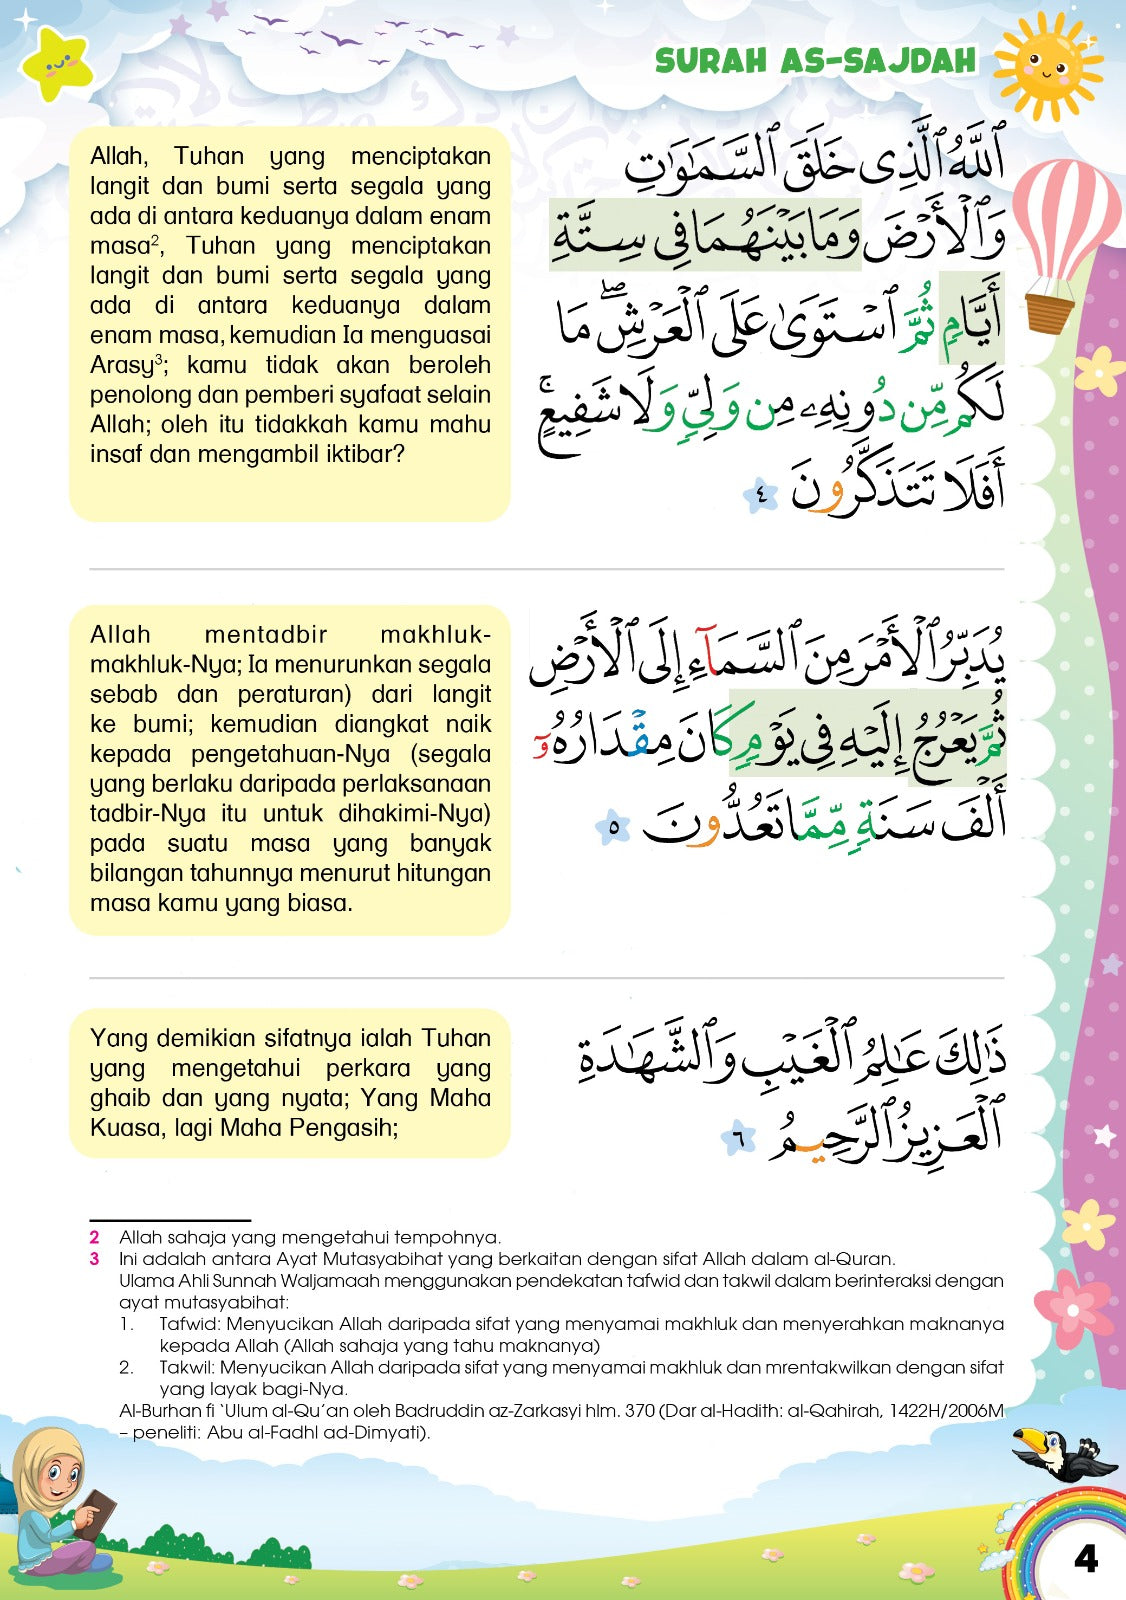 SURAH AS-SAJDAH
Allah, Tuhan yang menciptakan
langit dan bumi serta segala yang
ada di antara keduanya dalam enam
masa², Tuhan yang menciptakan
langit dan bumi serta segala yang
ada di antara keduanya dalam
enam masa, kemudian Ia menguasai
Arasy³; kamu tidak akan beroleh
penolong dan pemberi syafaat selain
Allah; oleh itu tidakkah kamu mahu
insaf dan mengambil iktibar?
ٱللَّهُ ٱلَّذِى خَلَقَ ٱلسَّمَـٰوَٰتِ
وَٱلْأَرْضَ وَمَا بَيْنَهُمَا فِى سِتَّةِ
أَيَّامٍ ثُمَّ ٱسْتَوَىٰ عَلَى ٱلْعَرْشِ ۖ مَا
لَكُم مِّن دُونِهِۦ مِن وَلِىٍّ وَلَا شَفِيعٍ ۚ
أَفَلَا تَتَذَكَّرُونَ ٤
Allah mentadbir makhluk-
makhluk-Nya; Ia menurunkan segala
sebab dan peraturan) dari langit
ke bumi; kemudian diangkat naik
kepada pengetahuan-Nya (segala
yang berlaku daripada perlaksanaan
tadbir-Nya itu untuk dihakimi-Nya)
pada suatu masa yang banyak
bilangan tahunnya menurut hitungan
masa kamu yang biasa.
يُدَبِّرُ ٱلْأَمْرَ مِنَ ٱلسَّمَآءِ إِلَى ٱلْأَرْضِ
ثُمَّ يَعْرُجُ إِلَيْهِ فِى يَوْمٍ كَانَ مِقْدَارُهُۥٓ
أَلْفَ سَنَةٍ مِّمَّا تَعُدُّونَ ٥
Yang demikian sifatnya ialah Tuhan
yang mengetahui perkara yang
ghaib dan yang nyata; Yang Maha
Kuasa, lagi Maha Pengasih;
ذَٰلِكَ عَـٰلِمُ ٱلْغَيْبِ وَٱلشَّهَـٰدَةِ
ٱلْعَزِيزُ ٱلرَّحِيمُ ٦
2 Allah sahaja yang mengetahui tempohnya.
3 Ini adalah antara Ayat Mutasyabihat yang berkaitan dengan sifat Allah dalam al-Quran.
Ulama Ahli Sunnah Waljamaah menggunakan pendekatan tafwid dan takwil dalam berinteraksi dengan
ayat mutasyabihat:
1. Tafwid: Menyucikan Allah daripada sifat yang menyamai makhluk dan menyerahkan maknanya
kepada Allah (Allah sahaja yang tahu maknanya)
2. Takwil: Menyucikan Allah daripada sifat yang menyamai makhluk dan mrentakwilkan dengan sifat
yang layak bagi-Nya.
Al-Burhan fi ‘Ulum al-Qu’an oleh Badruddin az-Zarkasyi hlm. 370 (Dar al-Hadith: al-Qahirah, 1422H/2006M
– peneliti: Abu al-Fadhl ad-Dimyati).
4